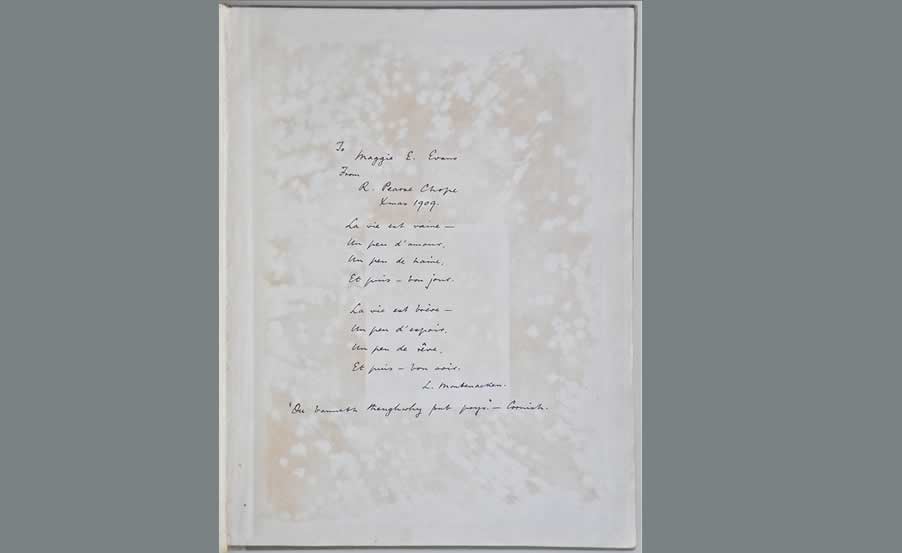 To
Maggie E. Evans
From
R. Pearse Chope
Xmas 1909.
La vie est vaine —
Un peu d'amour,
Un peu de haine,
Et puis – bon jour.
La vie est brève —
Un peu d'espoir,
Un peu de rêve,
Et puis – bon soir.
L. Montenaeken.
pub — Cornish.